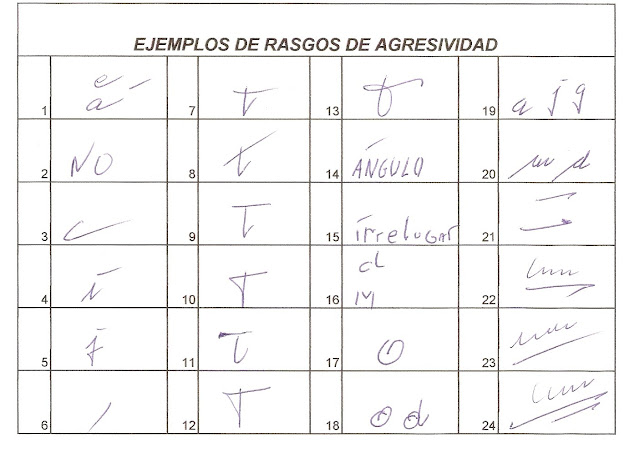 EJEMPLOS DE RASGOS DE AGRESIVIDAD
1 e a 7 t 13 t 19 a j g
2 NO 8 t 14 ÁNGULO 20 d
3 9 T 15 irrelugar 21
4 i 10 T 16 d M 22
5 11 T 17 o 23
6 12 T 18 o d 24